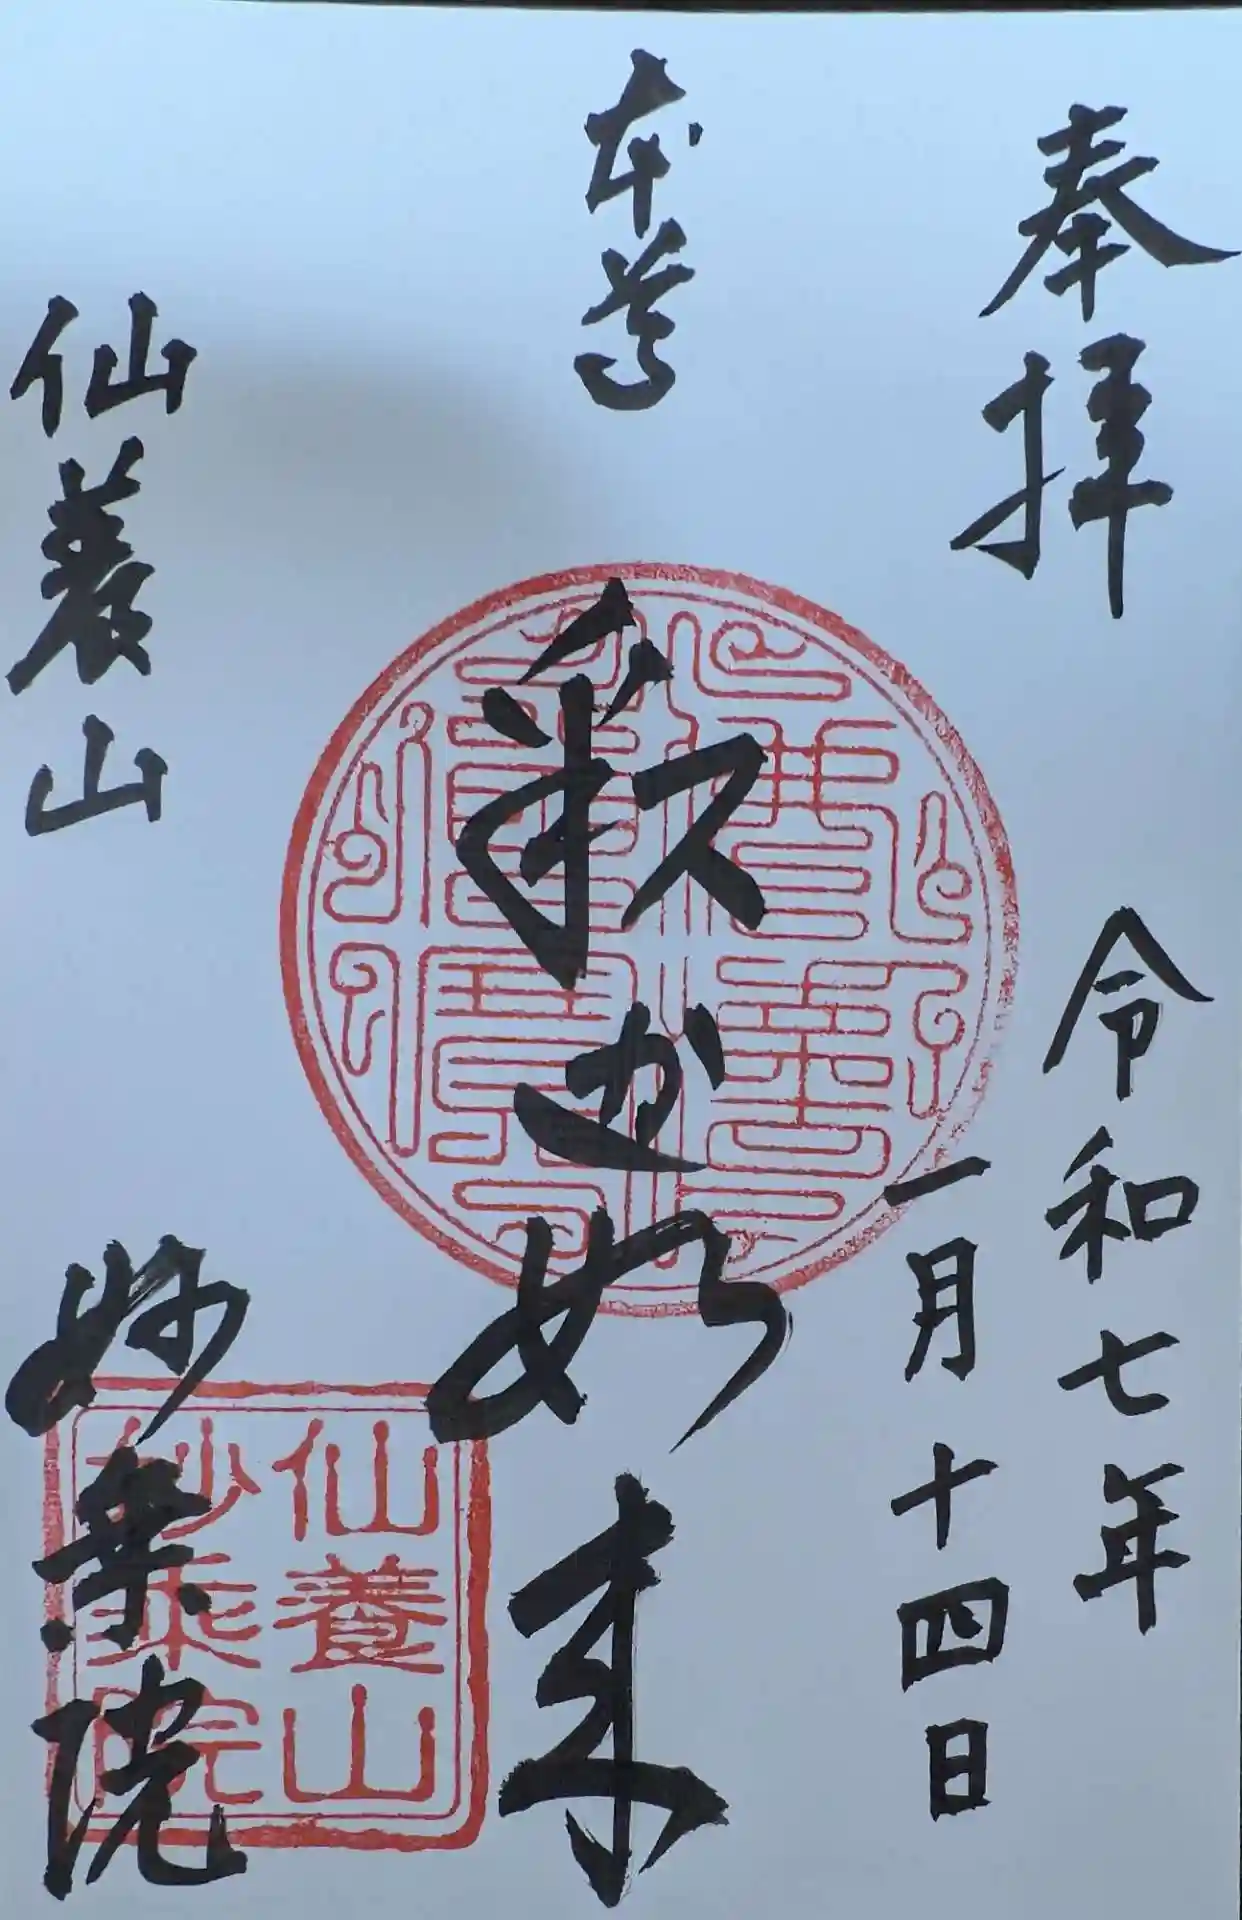 奉拝
令和七年
一月十四日
本尊
釈迦如来
仙養山
妙乗院
仙養山
妙乗院